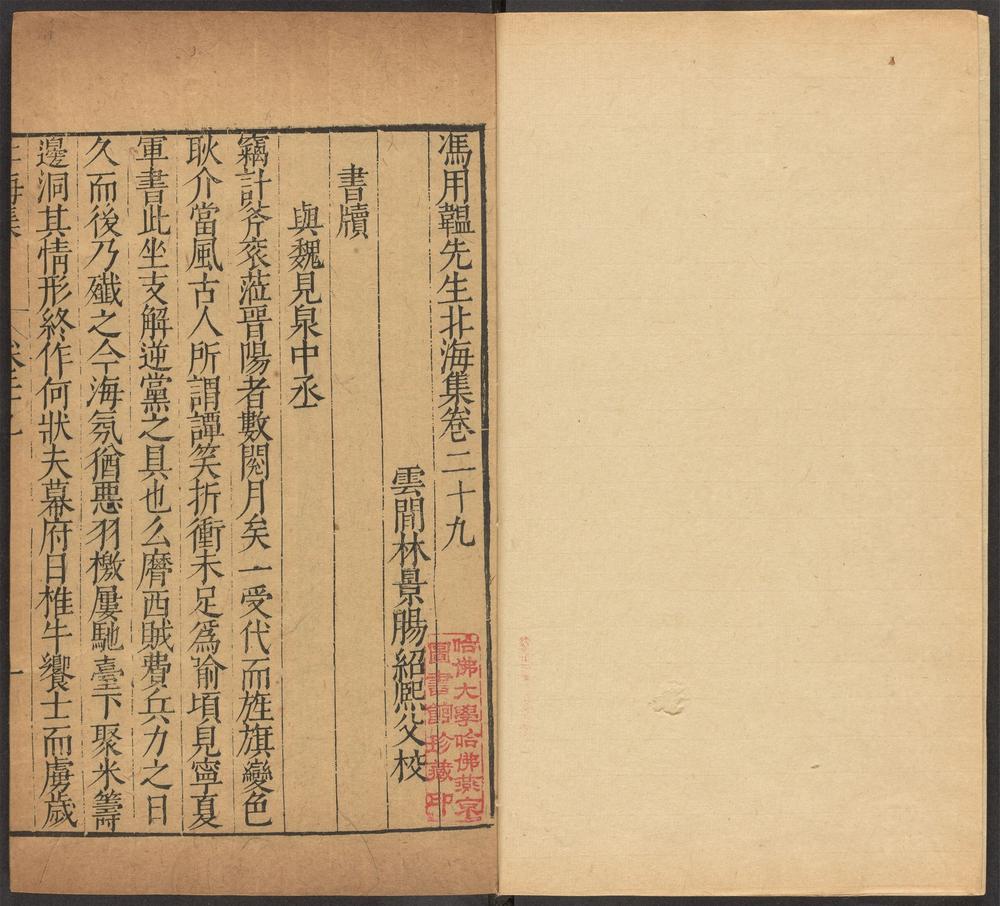 馮用韞先生北海集卷二十九
雲間林景暘紹熈父校
書牘
與魏見泉中丞
竊計斧衮蒞晋陽者數閱月矣一受代而旌旗變色
耿介當風古人所謂譚笑折衝未足爲喻頃見寧夏
軍書此坐支解逆黨之具也么麿西賊費兵力之日
久而後乃殱之今海氛猶悪羽檄屢馳臺下聚米籌
邊洞其情形終作何狀夫幕府日椎牛饗士而虜歲
北海集
卷二十九
一
哈佛大學哈佛燕京
圖書館珍藏印